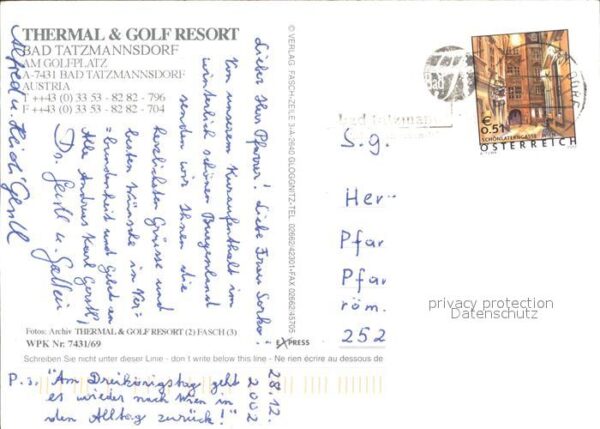 THERMAL & GOLF RESORT
BAD TATZMANNSDORF
AM GOLFPLATZ
A-7431 BAD TATZMANNSDORF
AUSTRIA
T ++43 (0) 33 53 - 82 82 - 796
F ++43 (0) 33 53 - 82 82 - 704
Lieber Herr Pfarrer! Liebe Frau
Von unserem Kuraufenthalt im
winterlich schönen Burgenland
senden wir Ihnen die
herzlichsten Grüsse und
besten Wünsche in Ver=
=bundenheit und Gebet an
Alle Andras Karl Gerstl,
Dr. Gerstl u. Gattin
Alfred u. Heidi Gerstl
© VERLAG FASCH-ZELE 3-A-2640 GLOGGNITZ-TEL. 02662/42001-FAX 02662/45705
EXPRESS
Fotos: Archiv THERMAL & GOLF RESORT (2) FASCH (3)
WPK Nr. 7431/69
Schreiben Sie nicht unter dieser Linie - don´t write below this line - Ne rien écrire au dessous de
P.S. "Am Dreikönigstag geht
es wieder nach Wien in
den Alltag zurück!"
28.12.
2002
bad tatzmann
€ 0.51
SCHÖNLATERNGASSE
ÖSTERREICH
S.g.
Her
Pfar
Pfar
röm.
252
privacy protection
Datenschutz